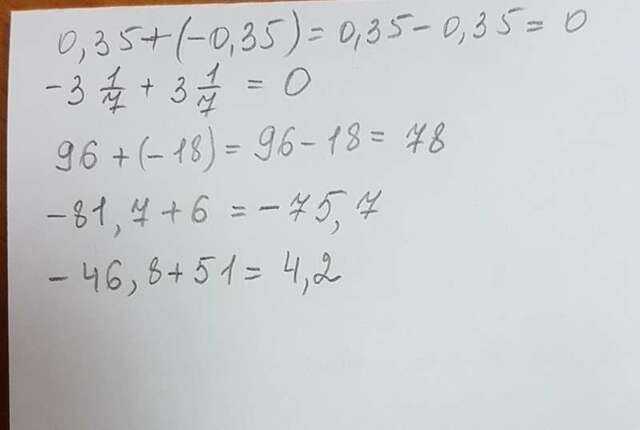 0,35+(-0,35)=0,35-0,35=0
-3 1/7 + 3 1/7 = 0
96+(-18)=96-18=78
-81,7+6=-75,7
-46,8+51=4,2